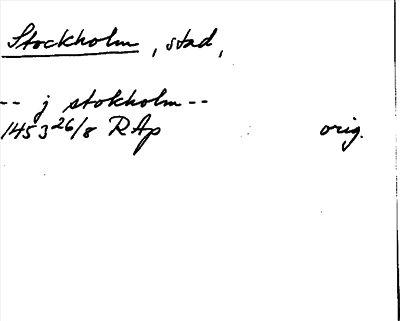 Stockholm, stad,
-- j stokholm --
1453 26/8 RAp orig.